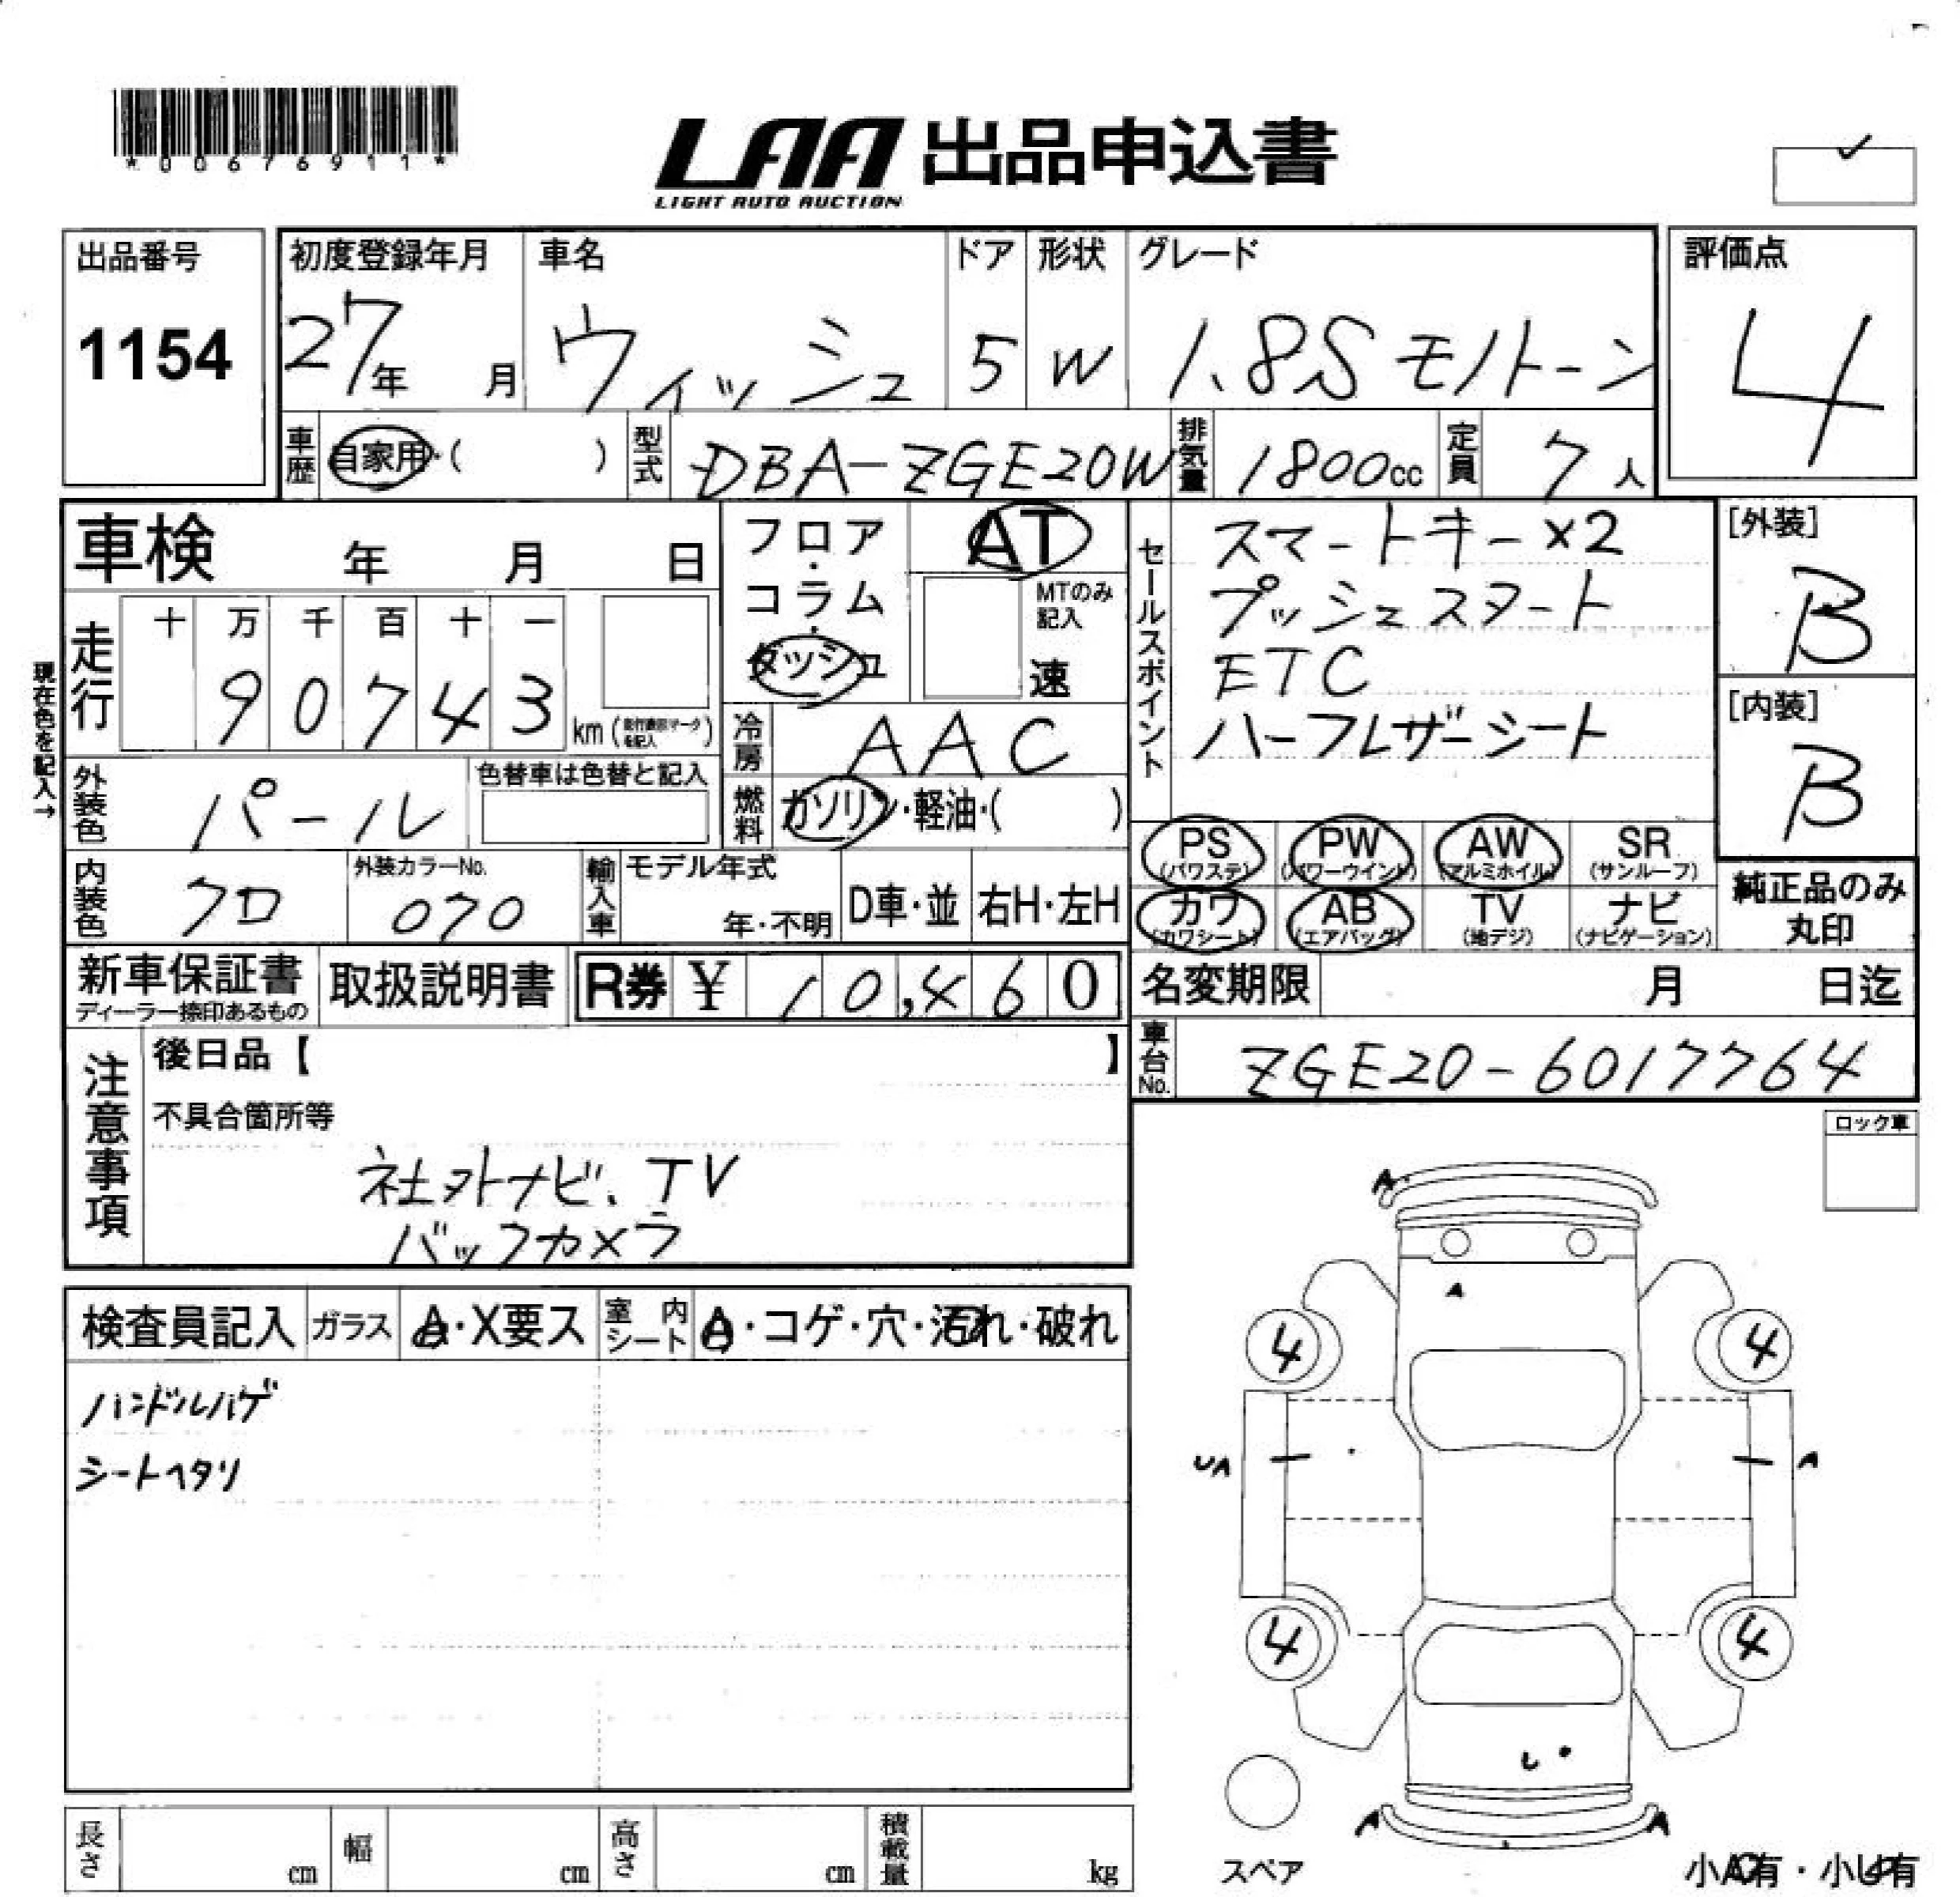 *00676911*
LAA 出品申込書
LIGHT AUTO AUCTION
出品番号
1154
初度登録年月
27年 月
車名
ウィッシュ
ドア
5
形状
W
グレード
1.8S モノトーン
評価点
4
車歴 自家用・( )
型式 DBA-ZGE20W
排気量 1800cc
定員 7人
車検 年 月 日
フロア・コラム・ダッシュ
AT
MTのみ記入
速
セールスポイント
スマートキー×2
プッシュスタート
ETC
ハーフレザーシート
[外装]
B
[内装]
B
現在色を記入→
走行
十 万 千 百 十 一
9 0 7 4 3 km
冷房 AAC
燃料 ガソリン・軽油・( )
外装色 パール
色替車は色替と記入
内装色 クロ
外装カラーNo.
070
輸入車
モデル年式
年・不明
D車・並
右H・左H
PS (パワステ)
PW (パワーウインド)
AW (アルミホイル)
SR (サンルーフ)
カワ (カワシート)
AB (エアバッグ)
TV (地デジ)
ナビ (ナビゲーション)
純正品のみ
丸印
新車保証書
ディーラー捺印あるもの
取扱説明書
R券 ¥ 10,460
名変期限 月 日迄
車台No. ZGE20-6017764
注意事項
後日品【 】
不具合箇所等
社外ナビ、TV
バックカメラ
ロック車
検査員記入
ガラス A・X要ス
室内シート A・コゲ・穴・汚れ・破れ
ハンドルハゲ
シートヘタリ
A
A
4 4
UA A
4 4
A A
スペア
長さ cm
幅 cm
高さ cm
積載量 kg
小A有・小U有